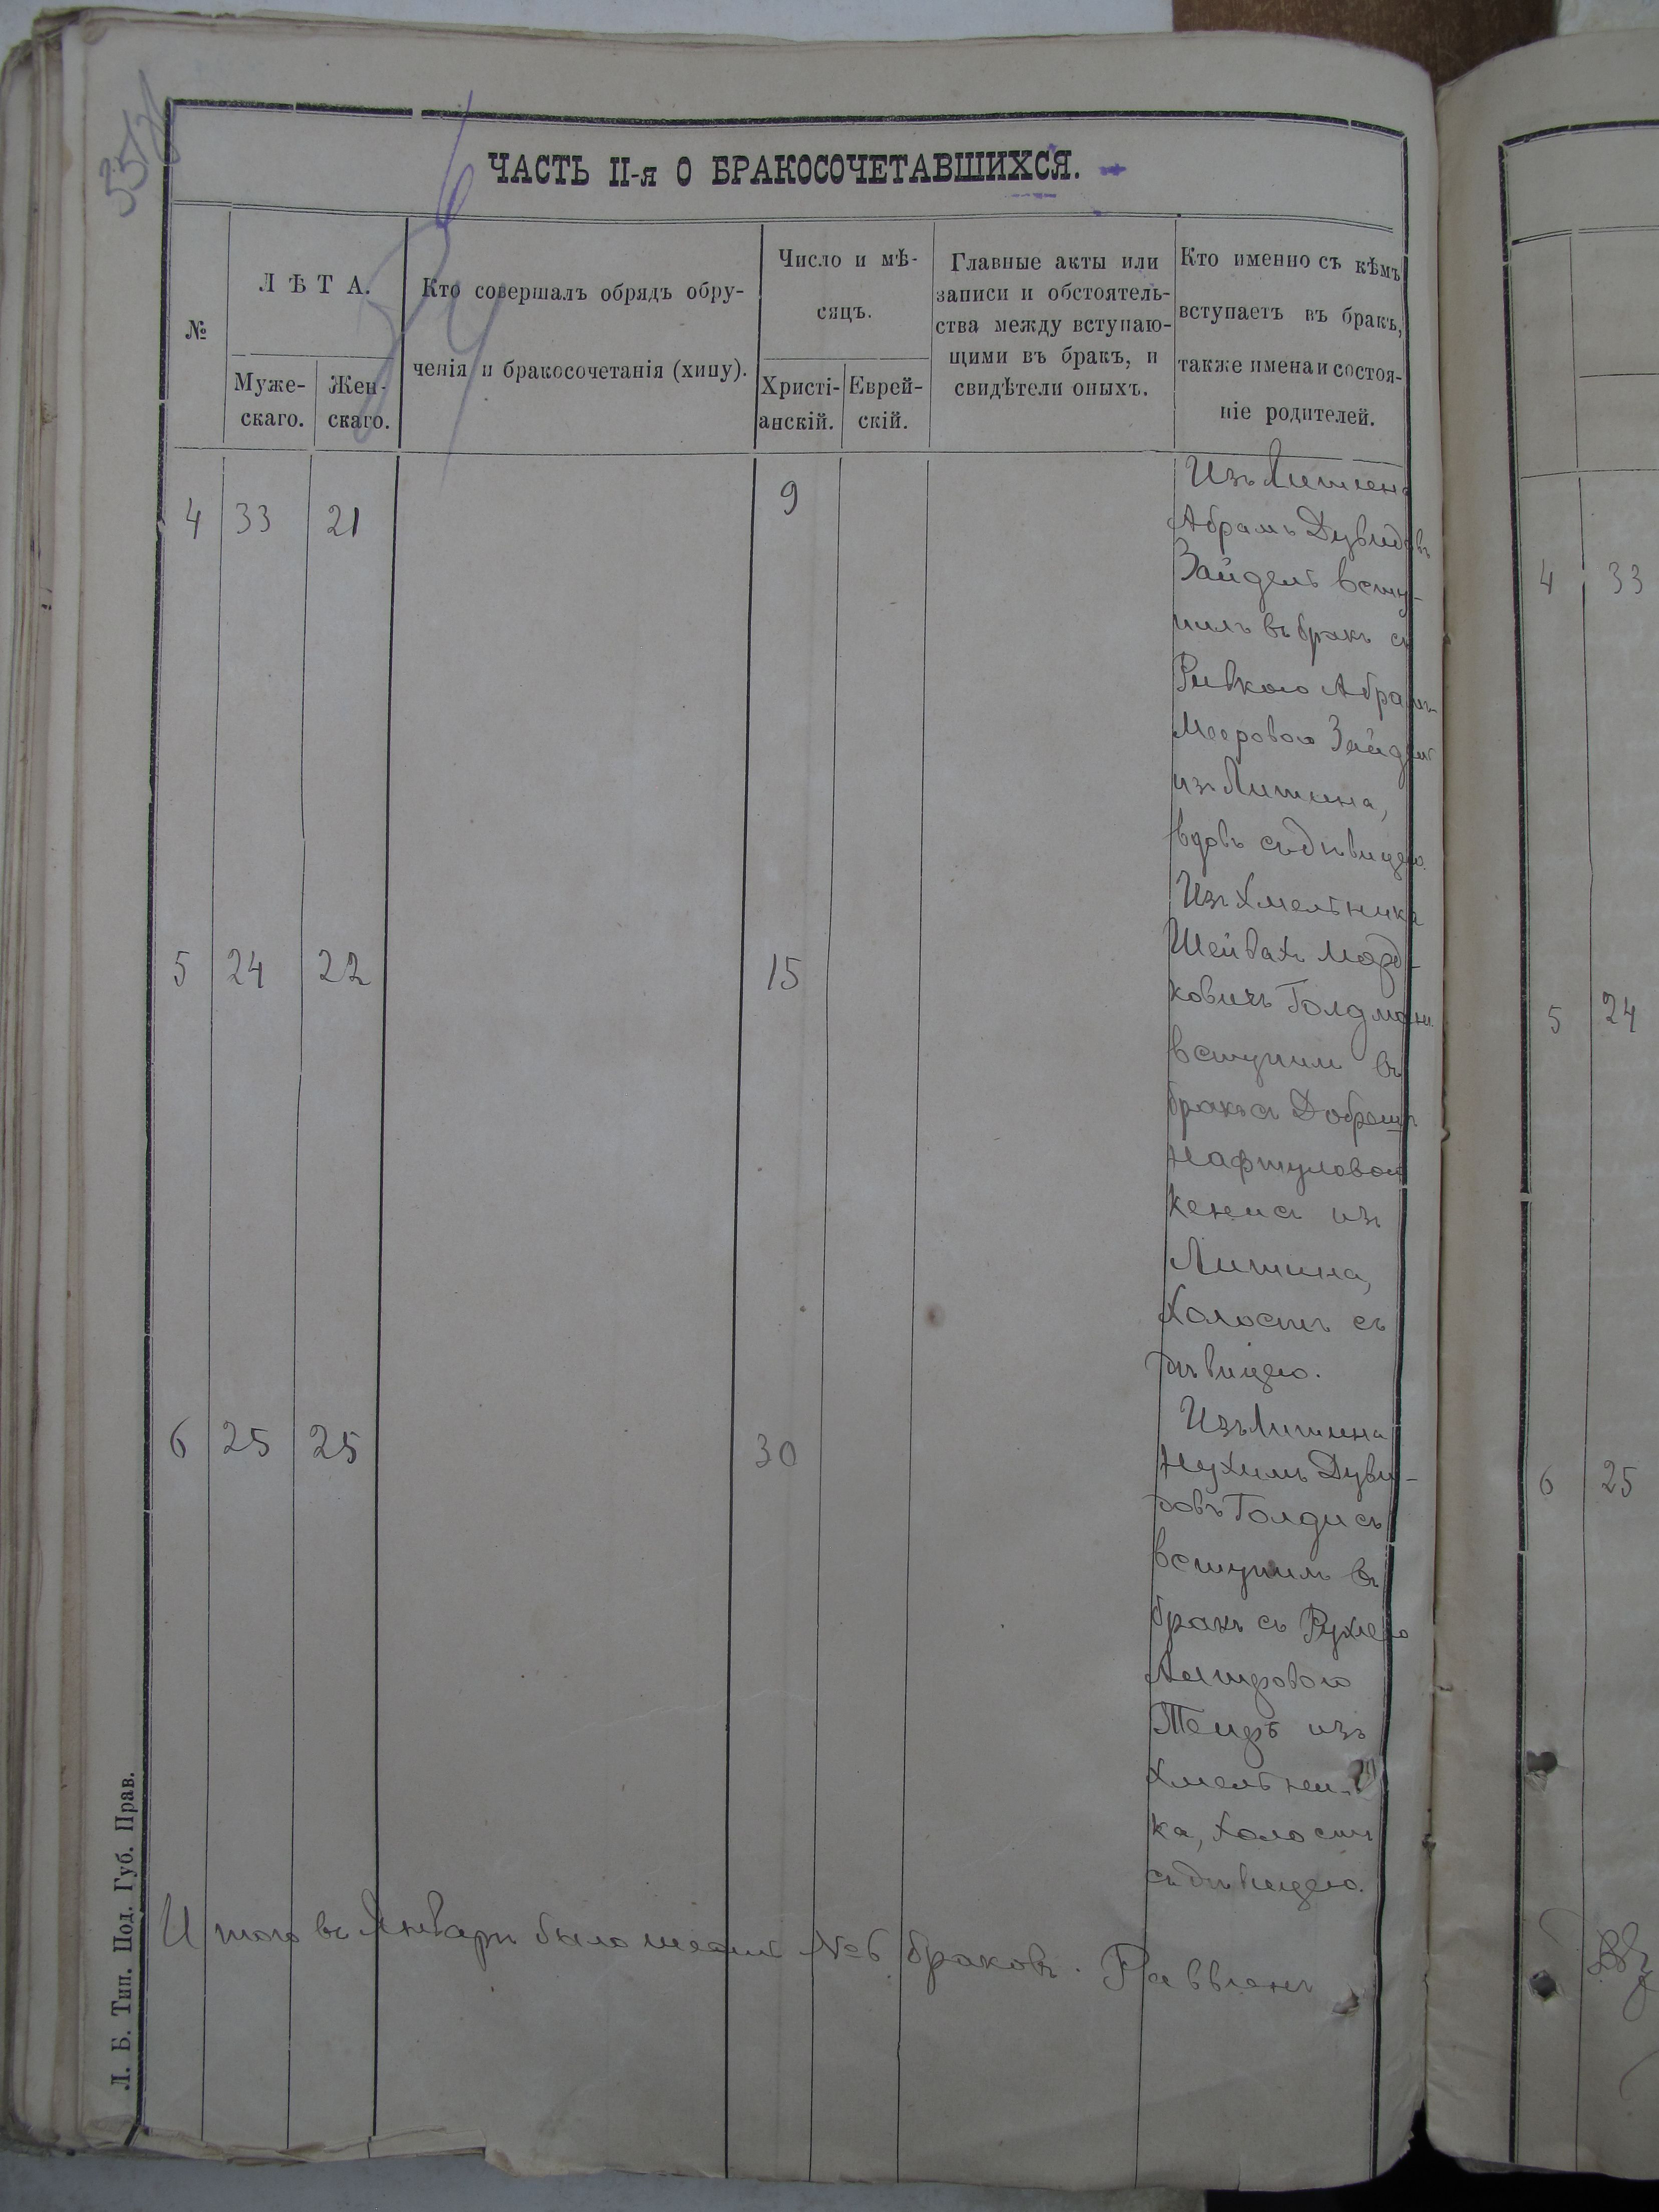 ЧАСТЬ II-я О БРАКОСОЧЕТАВШИХСЯ.
№
ЛѢТА.
Муже-
скаго.
Жен-
скаго.
Кто совершалъ обрядъ обру-
ченія и бракосочетанія (хипу).
Число и мѣ-
сяцъ.
Христі-
анскій.
Еврей-
скій.
Главные акты или
записи и обстоятель-
ства между вступаю-
щими въ бракъ, и
свидѣтели оныхъ.
Кто именно съ кѣмъ
вступаетъ въ бракъ,
также имена и состоя-
ніе родителей.
4 33 21 9
Изъ Литина
Абрамъ Дувидовъ
Зайдель всту-
пилъ въ бракъ съ
Ривкою Абрамъ-
Мееровою Зайдель
изъ Литина,
вдовъ съ дѣвицею.
5 24 22 15
Изъ Хмельника
Шейвахъ Морд-
ковичъ Голдманъ
вступилъ въ
бракъ съ
Нафтуловою
Кенисъ изъ
Литина,
Холостъ съ
дѣвицею.
6 25 25 30
Изъ Литина
Нухимъ Дуви-
довъ Голдисъ
вступилъ въ
бракъ съ Рухлею
Алтеровою
изъ
Хмельни-
ка, холостъ
съ дѣвицею.
Итого въ Январѣ было шесть №6 браковъ. Раввинъ
Л. Б. Тип. Под. Губ. Прав.
4 33
5 24
6 25